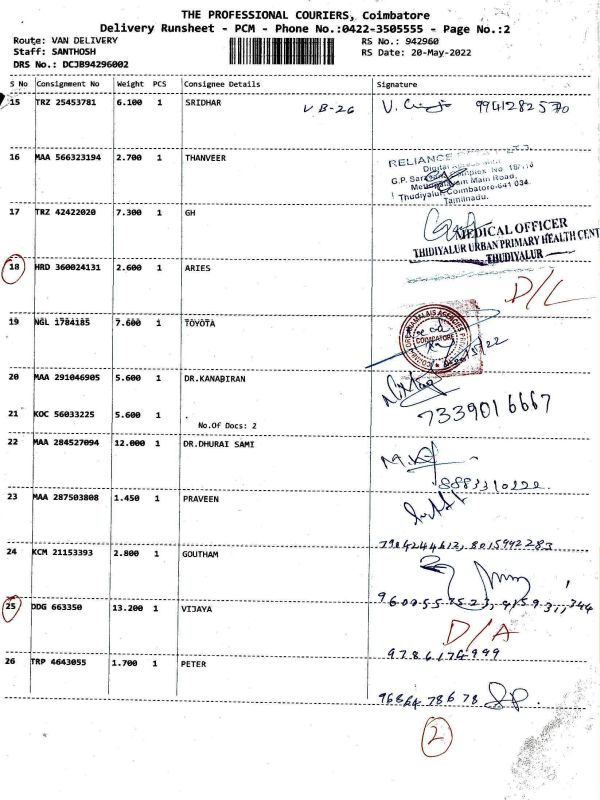 THE PROFESSIONAL COURIERS, Coimbatore
Delivery Runsheet - PCM - Phone No.:0422-3505555 - Page No.:2
Route: VAN DELIVERY RS No.: 942960
Staff: SANTHOSH RS Date: 20-May-2022
DRS No.: DCJB94296002
S No Consignment No Weight PCS Consignee Details Signature
15 TRZ 25453781 6.100 1 SRIDHAR VB-26 9941282570
16 MAA 566323194 2.700 1 THANVEER
RELIANCE
G.P. Complex No
Main Road,
Thudiyalur, Coimbatore-641 034.
Tamilnadu.
17 TRZ 42422020 7.300 1 GH
MEDICAL OFFICER
THIDIYALUR URBAN PRIMARY HEALTH CENT
THUDIYALUR
18 HRD 360024131 2.600 1 ARIES
D/L
19 NGL 1784185 7.600 1 TOYOTA
COIMBATORE
20 MAA 291046905 5.600 1 DR.KANABIRAN
21 KOC 56033225 5.600 1
7339016667
No.Of Docs: 2
22 MAA 284527094 12.000 1 DR.DHURAI SAMI
23 MAA 287503808 1.450 1 PRAVEEN
8015942283
24 KCM 21153393 2.800 1 GOUTHAM
25 DDG 663350 13.200 1 VIJAYA
D/A
26 TRP 4643055 1.700 1 PETER
2